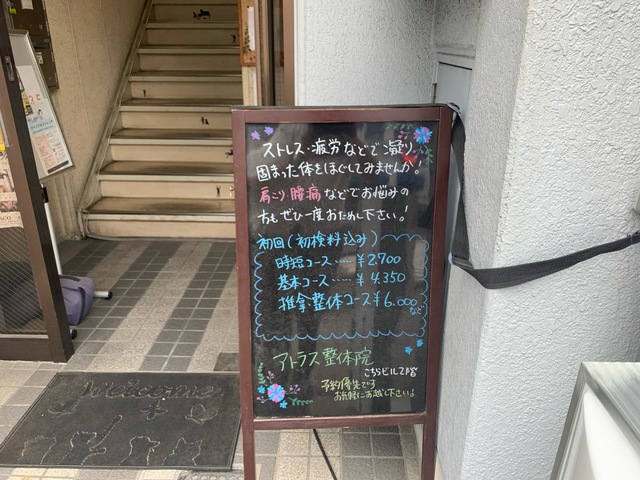 ストレス・疲労などで凝り
固まった体をほぐしてみませんか。
肩こり・腰痛などでお悩みの
方もぜひ一度おためし下さい!
初回(初検料込み)
時短コース……¥2,700
基本コース……¥4,350
推拿・整体コース¥6,000
など
アトラス整体院
こちらビル2階
予約優先です
お気軽にお越し下さい♪
Welcome